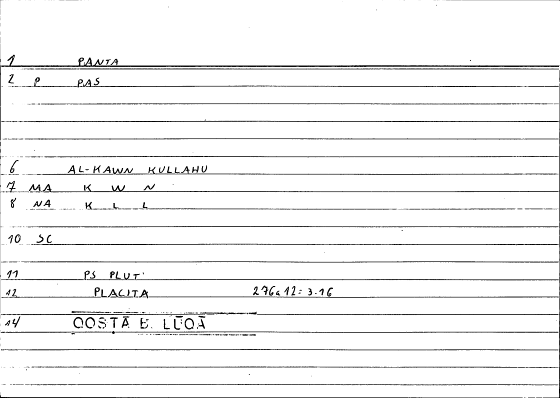 1 PANTA
2 P PAS
6 AL-KAWN KULLAHU
7 MA K W N
8 NA K L L
10 SC
11 PS PLUT'
12 PLACITA 276a12= 3.16
14 QOSṬĀ B. LŪQĀ